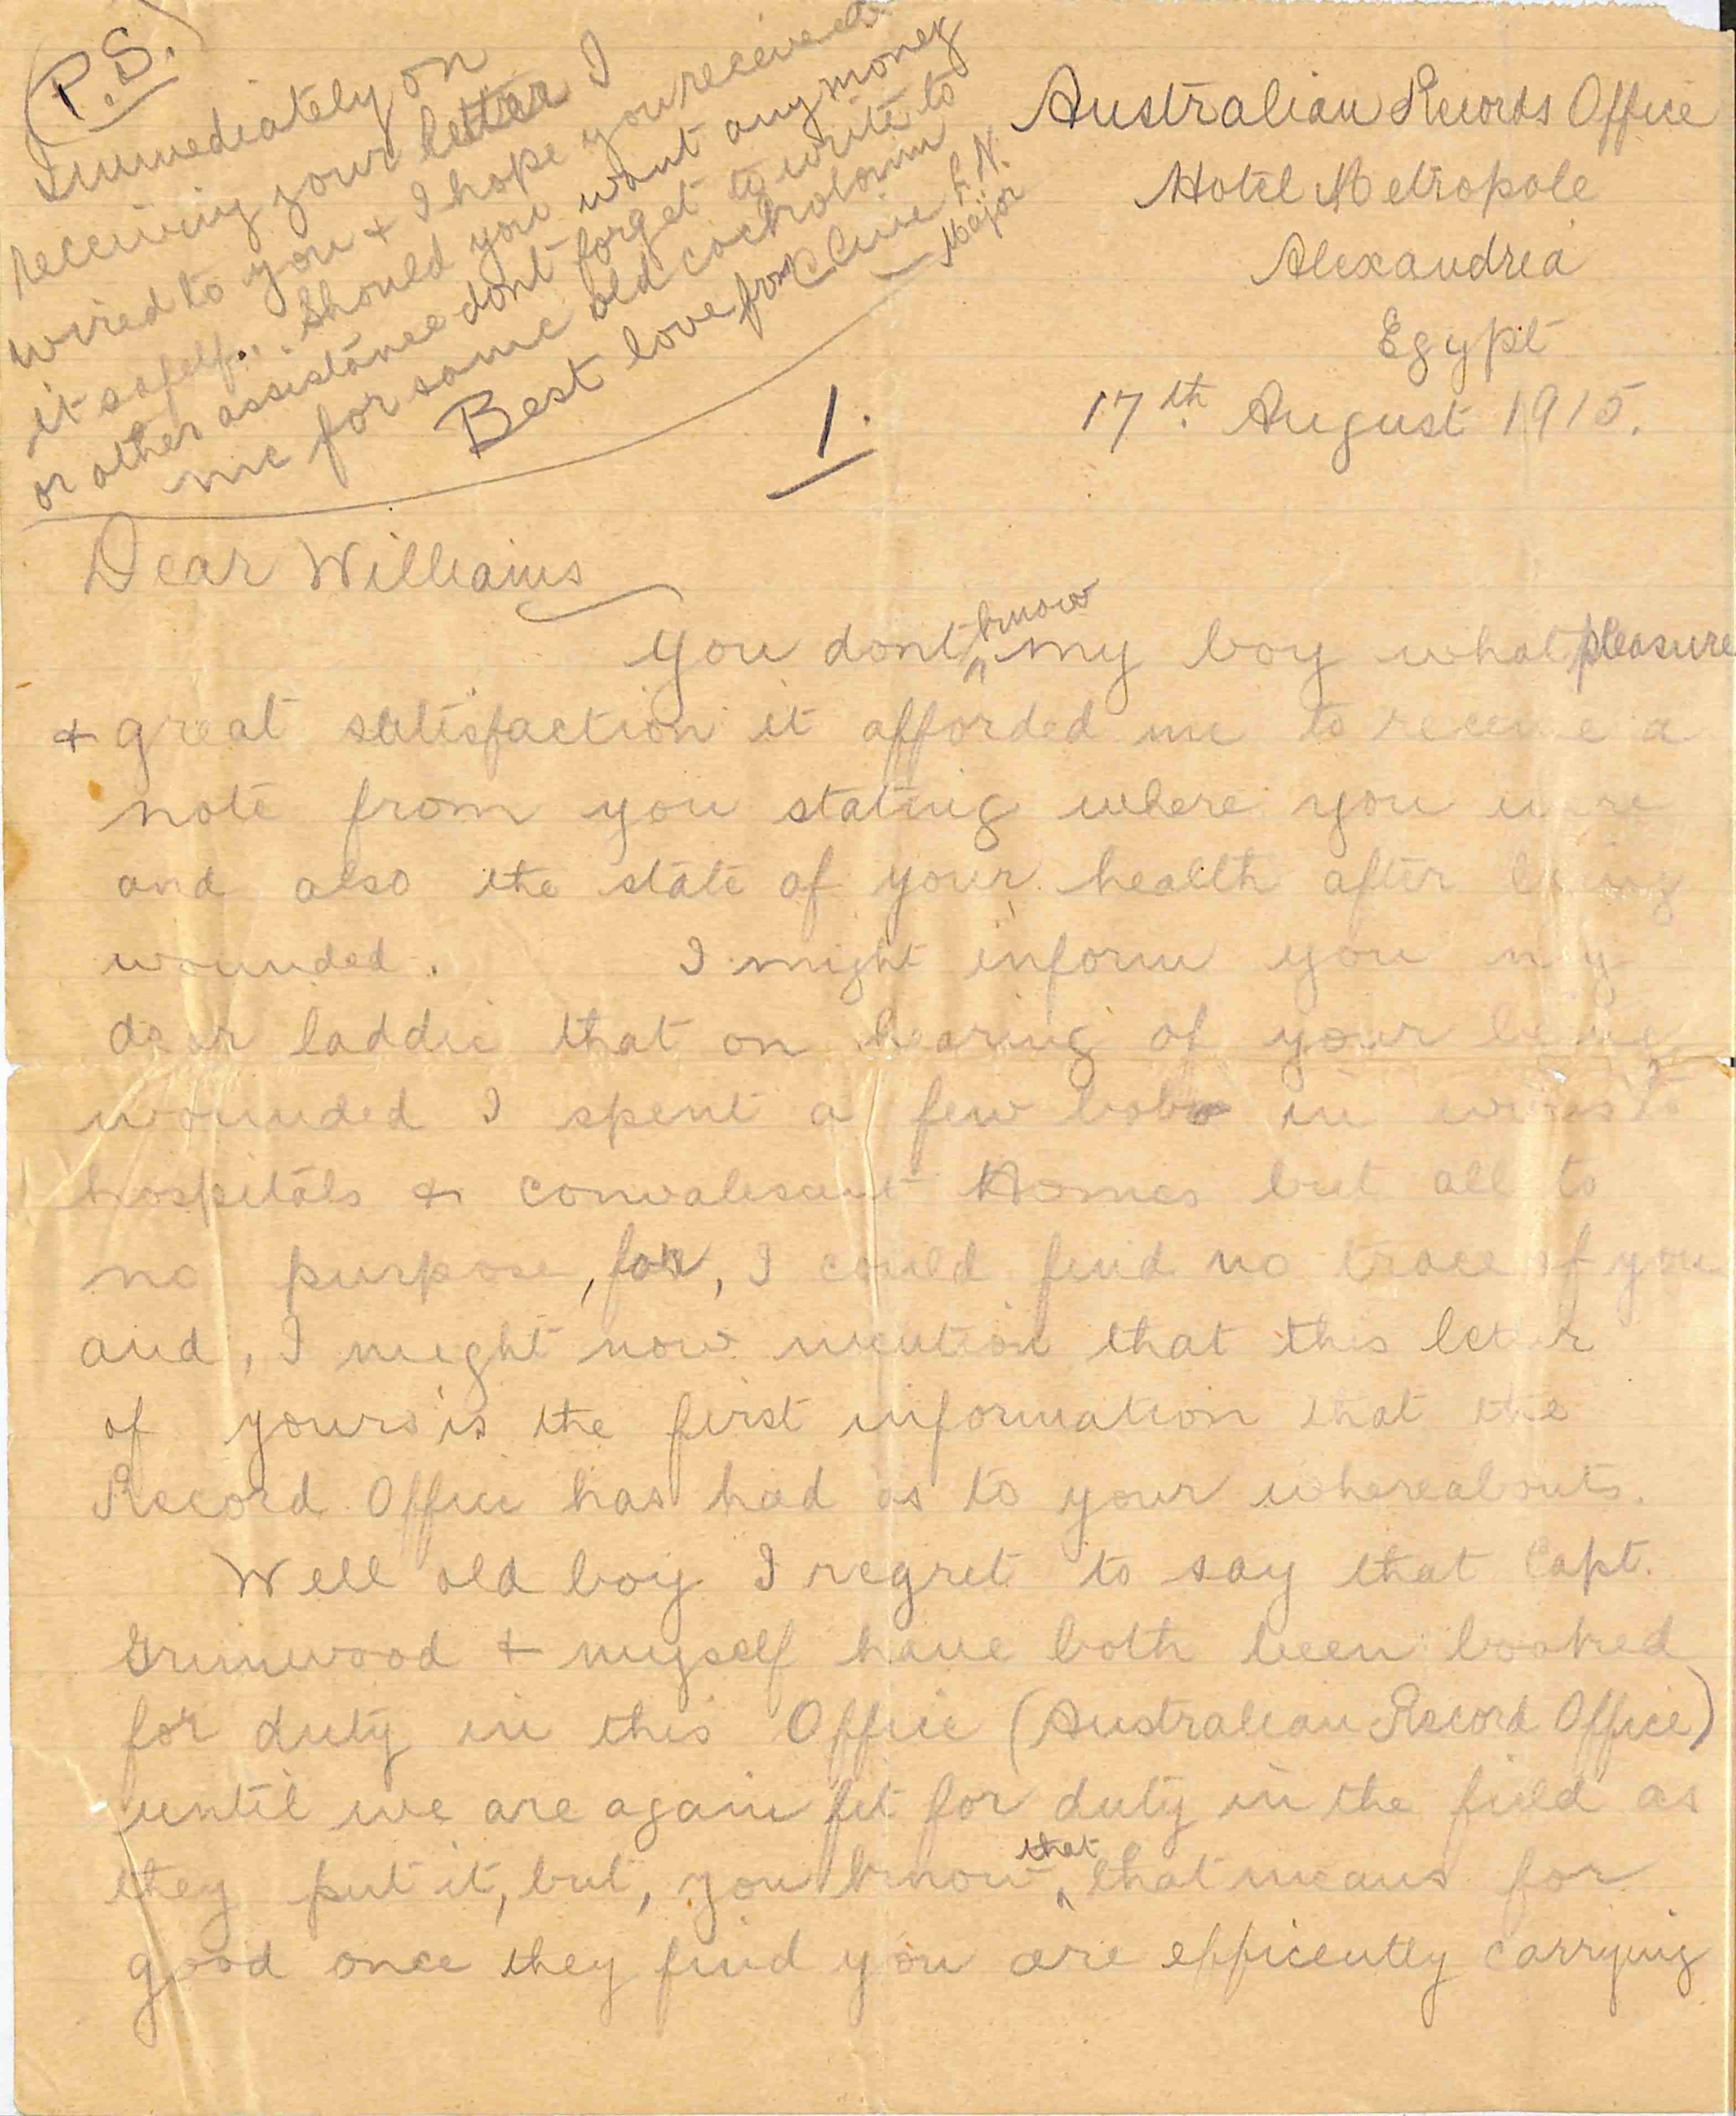 (P.S.)
Immediately on
receiving your letter I
wired to you & I hope you received
it safely. Should you want any money
or other assistance dont forget to write to
me for same old cockrolorum
Best love from Clive L.N.
Major
Australian Records Office
Hotel Metropole
Alexandria
Egypt
17th August 1915.
1.
Dear Williams
You dont know my boy what pleasure
& great satisfaction it afforded me to receive a
note from you stating where you were
and also the state of your health after being
wounded. I might inform you my
dear laddie that on hearing of your being
wounded I spent a few bob in wires to
hospitals & convalescent Homes but all to
no purpose, for, I could find no trace of you
and, I might now mention that this letter
of yours is the first information that the
Record Office has had as to your whereabouts.
Well old boy I regret to say that Capt.
Grimwood & myself have both been booked
for duty in this Office (Australian Record Office)
until we are again fit for duty in the field as
they put it, but, you know that that means for
good once they find you are efficently carrying